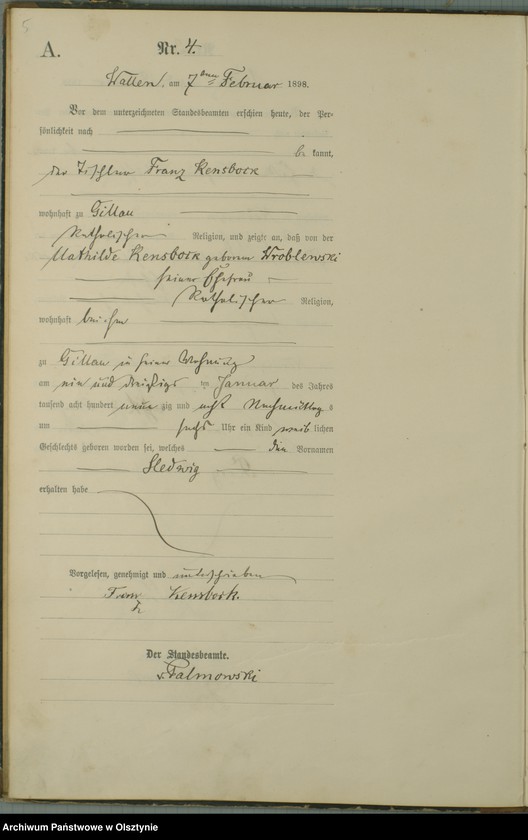 5
A.
Nr. 4.
Wallen, am 7ten Februar 1898.
Vor dem unterzeichneten Standesbeamten erschien heute, der Per-
sönlichkeit nach
be kannt,
der Tischler Franz Kensbock
wohnhaft zu Gillau
Katholischer Religion, und zeigte an, daß von der
Mathilde Kensbock geborenen Wroblewski
seiner Ehefrau
Katholischer Religion,
wohnhaft bei ihm
zu Gillau in seiner Wohnung
am ein und dreißigsten Januar des Jahres
tausend acht hundert neun zig und acht Nachmittags
um sechs Uhr ein Kind weib lichen
Geschlechts geboren worden sei, welches den Vornamen
Hedwig
erhalten habe
Vorgelesen, genehmigt und unterschrieben
Franz Kensbock.
Der Standesbeamte.
v. Palmowski
Archiwum Państwowe w Olsztynie